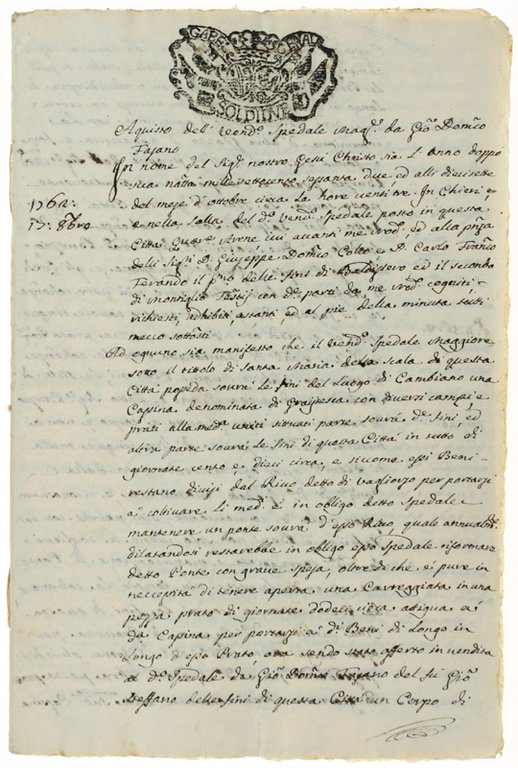 SOLDI
Aquisto dell' Vend.º Spedale Magg.e da Gio Dom.co
Fasano
In nome del Sig.r nostro Gesù Christo sia l'anno doppo
sua natta mille settecento sessanta due ed alli diecisette
1762:
17: 8bre
del mese d'ottobre circa le hore venti tre. In Chieri e
e nella Salla del d.º Vend.e Spedale posto in questa
Città avanti me ed alla
delli Sig.ri D. Giuseppe Dom.co ed D. Carlo Franc.co
Ferando il p.mo delle fini di Baldissero ed il secondo
di Montiglio Test.j con d.e parti da me cogniti,
richiesti, adhibiti, astanti, ed al pie della minuta sotti
meco sottosti
Ad ogniuno sia manifesto che il Vend.º Spedale Maggiore
sotto il titolo di Santa Maria della scala di questa
Città possieda soura le fini del Luogo di Cambiano una
Cassina denominata di con diversi campi, e
prati alla med.ma uniti situati parte soura d.e fini, ed
altra parte soura le fini di questa Città in tutto di
giornate cento e dieci circa, e siccome essi Beni
restano divisi dal Rivo detto di per portarsi
a' coltivare li med.i è in obligo detto Spedale
mantenere un ponte soura d'esso Rivo, quale annualm.te
dilatandosi restarebbe in obligo esso Spedale riformare
detto Ponte con grave spesa, oltre di che è pure in
neccessità di tenere aperta una Carreggiata in una
pezza prato di giornate dodeci circa attigua a'
d.a Cassina per portarsi a' d.i Beni di Longo in
Longo d'esso Prato, ora sendo stato offerto in vendita
al d.º Spedale da Gio Dom.co Fasano del fu Gio
Steffano delle fini di questa Città un Corpo di